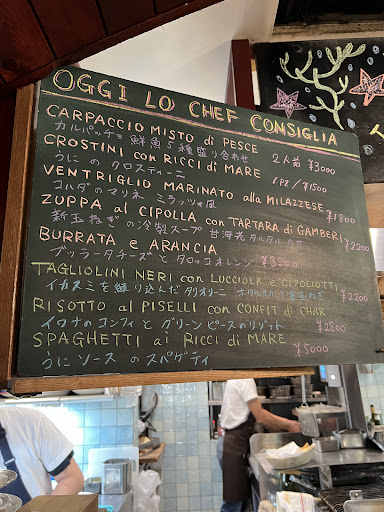 OGGI LO CHEF CONSIGLIA
CARPACCIO MISTO di PESCE
カルパッチョ 鮮魚5種盛り合わせ 2人前 ¥3000
CROSTINI con RICCI di MARE
うに の クロスティーニ 1Pz/¥1500
VENTRIGLIO MARINATO alla MILAZZESE
コルダのマリネ ミラッツォ風 ¥1800
ZUPPA al CIPOLLA con TARTARA di GAMBERI
新玉ねぎ の冷製スープ 甘海老タルタルのせ ¥2200
BURRATA e ARANCIA
ブッラータチーズ と タロッコオレンジ ¥3200
TAGLIOLINI NERI con LUCCIOLA e CIPOLLOTTI
イカスミを練り込んだタリオリーニ ホタルイカと葉玉ねぎ ¥2200
RISOTTO al PISELLI con CONFIT di CHAR
イワナのコンフィ と グリーンピースのリゾット ¥2800
SPAGHETTI ai RICCI di MARE
うにソース の スパゲティ ¥5000